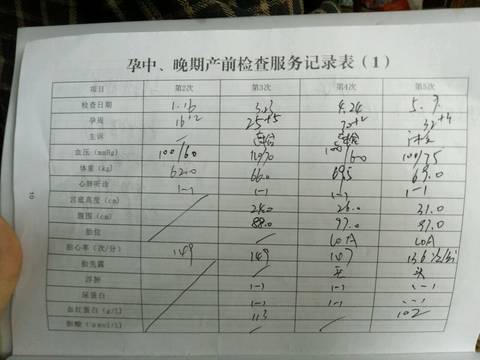 孕中、晚期产前检查服务记录表（1）
项目 第2次 第3次 第4次 第5次
检查日期 1.16 3.23 4.24 5.9.
孕周 16+2 25+5 32+4
主诉 /
血压 (mmHg) 100/60 100/75
体重 (kg) 62.0 66.0 69.5 69.0
心肺听诊 (-) (-) (-) (-)
宫底高度 (cm) 24.0 26.0 31.0
腹围 (cm) 88.0 97.0 97.0
胎位 / LOA LOA
胎心率（次/分） 149 149 147 136次/分
胎先露 / 头 头
浮肿 (-) (-) (-)
尿蛋白 (-) (-) (-)
血红蛋白 (g/l) 113 / 102
胆酸 (umol/l) / /
10